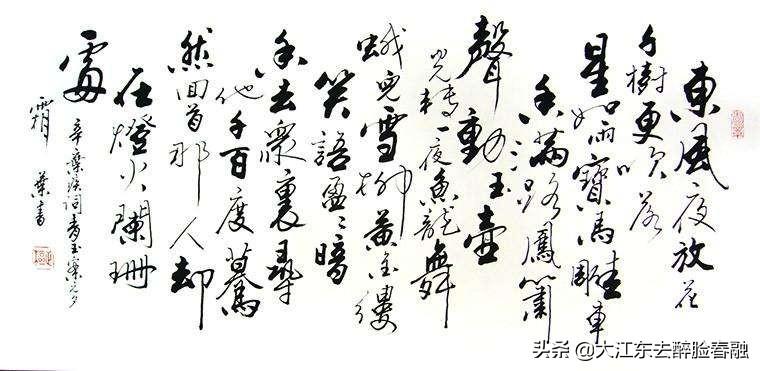 東風夜放花
千樹更吹落
星如雨寶馬雕車
香滿路鳳簫
聲動玉壺
光轉一夜魚龍舞
蛾兒雪柳黃金縷
笑語盈〻暗
香去眾裏尋
他千百度驀
然回首那人却
在燈火闌珊
處
辛棄疾詞青玉案元夕
霜葉書
头条 @大江东去醉脸春融